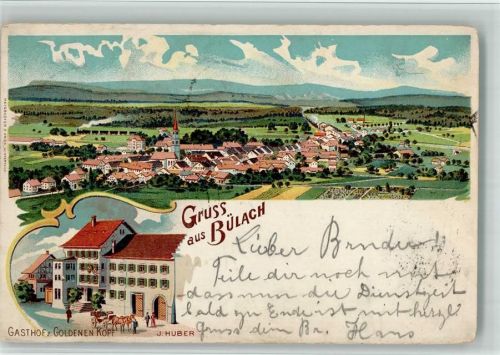 Gruss
aus BÜLACH
GASTHOF z. GOLDENEN KOPF
J. HUBER
Lieber Bruder!
Teile dir noch mit
dass nun die Dienstzeit
bald zu Ende ist mit herzl.
Gruss dein Br. Hans